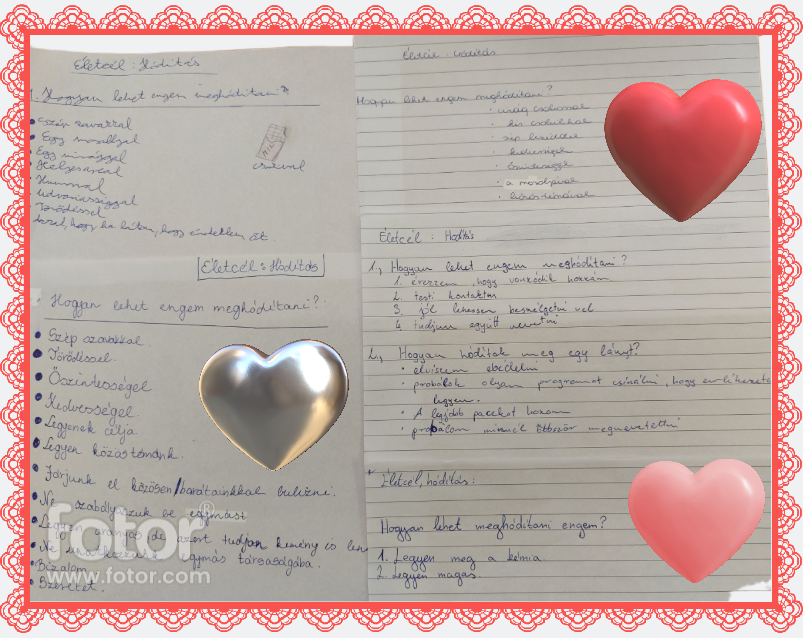 Életcél : Hódítás
1. Hogyan lehet engem meghódítani?
• Szép szavakkal
• Egy mosollyal
• Egy virággal
• Humorral
• udvariassággal
• Törődéssel
Azzal, hogy ha látom, hogy érdeklem őt.
Életcél : Hódítás
Hogyan lehet engem meghódítani?
• Szép szavakkal.
• Törődéssel.
• Őszinteséggel
• Kedvességgel
• Legyenek céljai.
• Legyen közös témánk.
• Járjunk el közösen/barátainkkal bulizni.
• Ne szabályozzuk be egymást.
• Legyen aranyos, de azért tudjon kemény is lenni
• Ne unatkozzunk egymás társaságába.
• Bizalom
• Szeretet.
Életcél : Hódítás
Hogyan lehet engem meghódítani?
• kis csokival
• kedvességgel
• őszinteséggel
• a mosolyával
Életcél : Hódítás
1., Hogyan lehet engem meghódítani?
1. érezzem, hogy vonzódik hozzám
2. testi kontaktus
3. jól lehessen beszélgetni vele
4. tudjunk együtt nevetni
2., Hogyan hódítok meg egy lányt?
• elviszem ebédelni
• próbálok olyan programot csinálni, hogy emlékezetes
legyen.
• A legjobb
• próbálom minnél többször megnevettetni
Életcél, hódítás:
Hogyan lehet meghódítani engem?
1. Legyen meg a kémia.
2. Legyen magas.
fotor
www.fotor.com